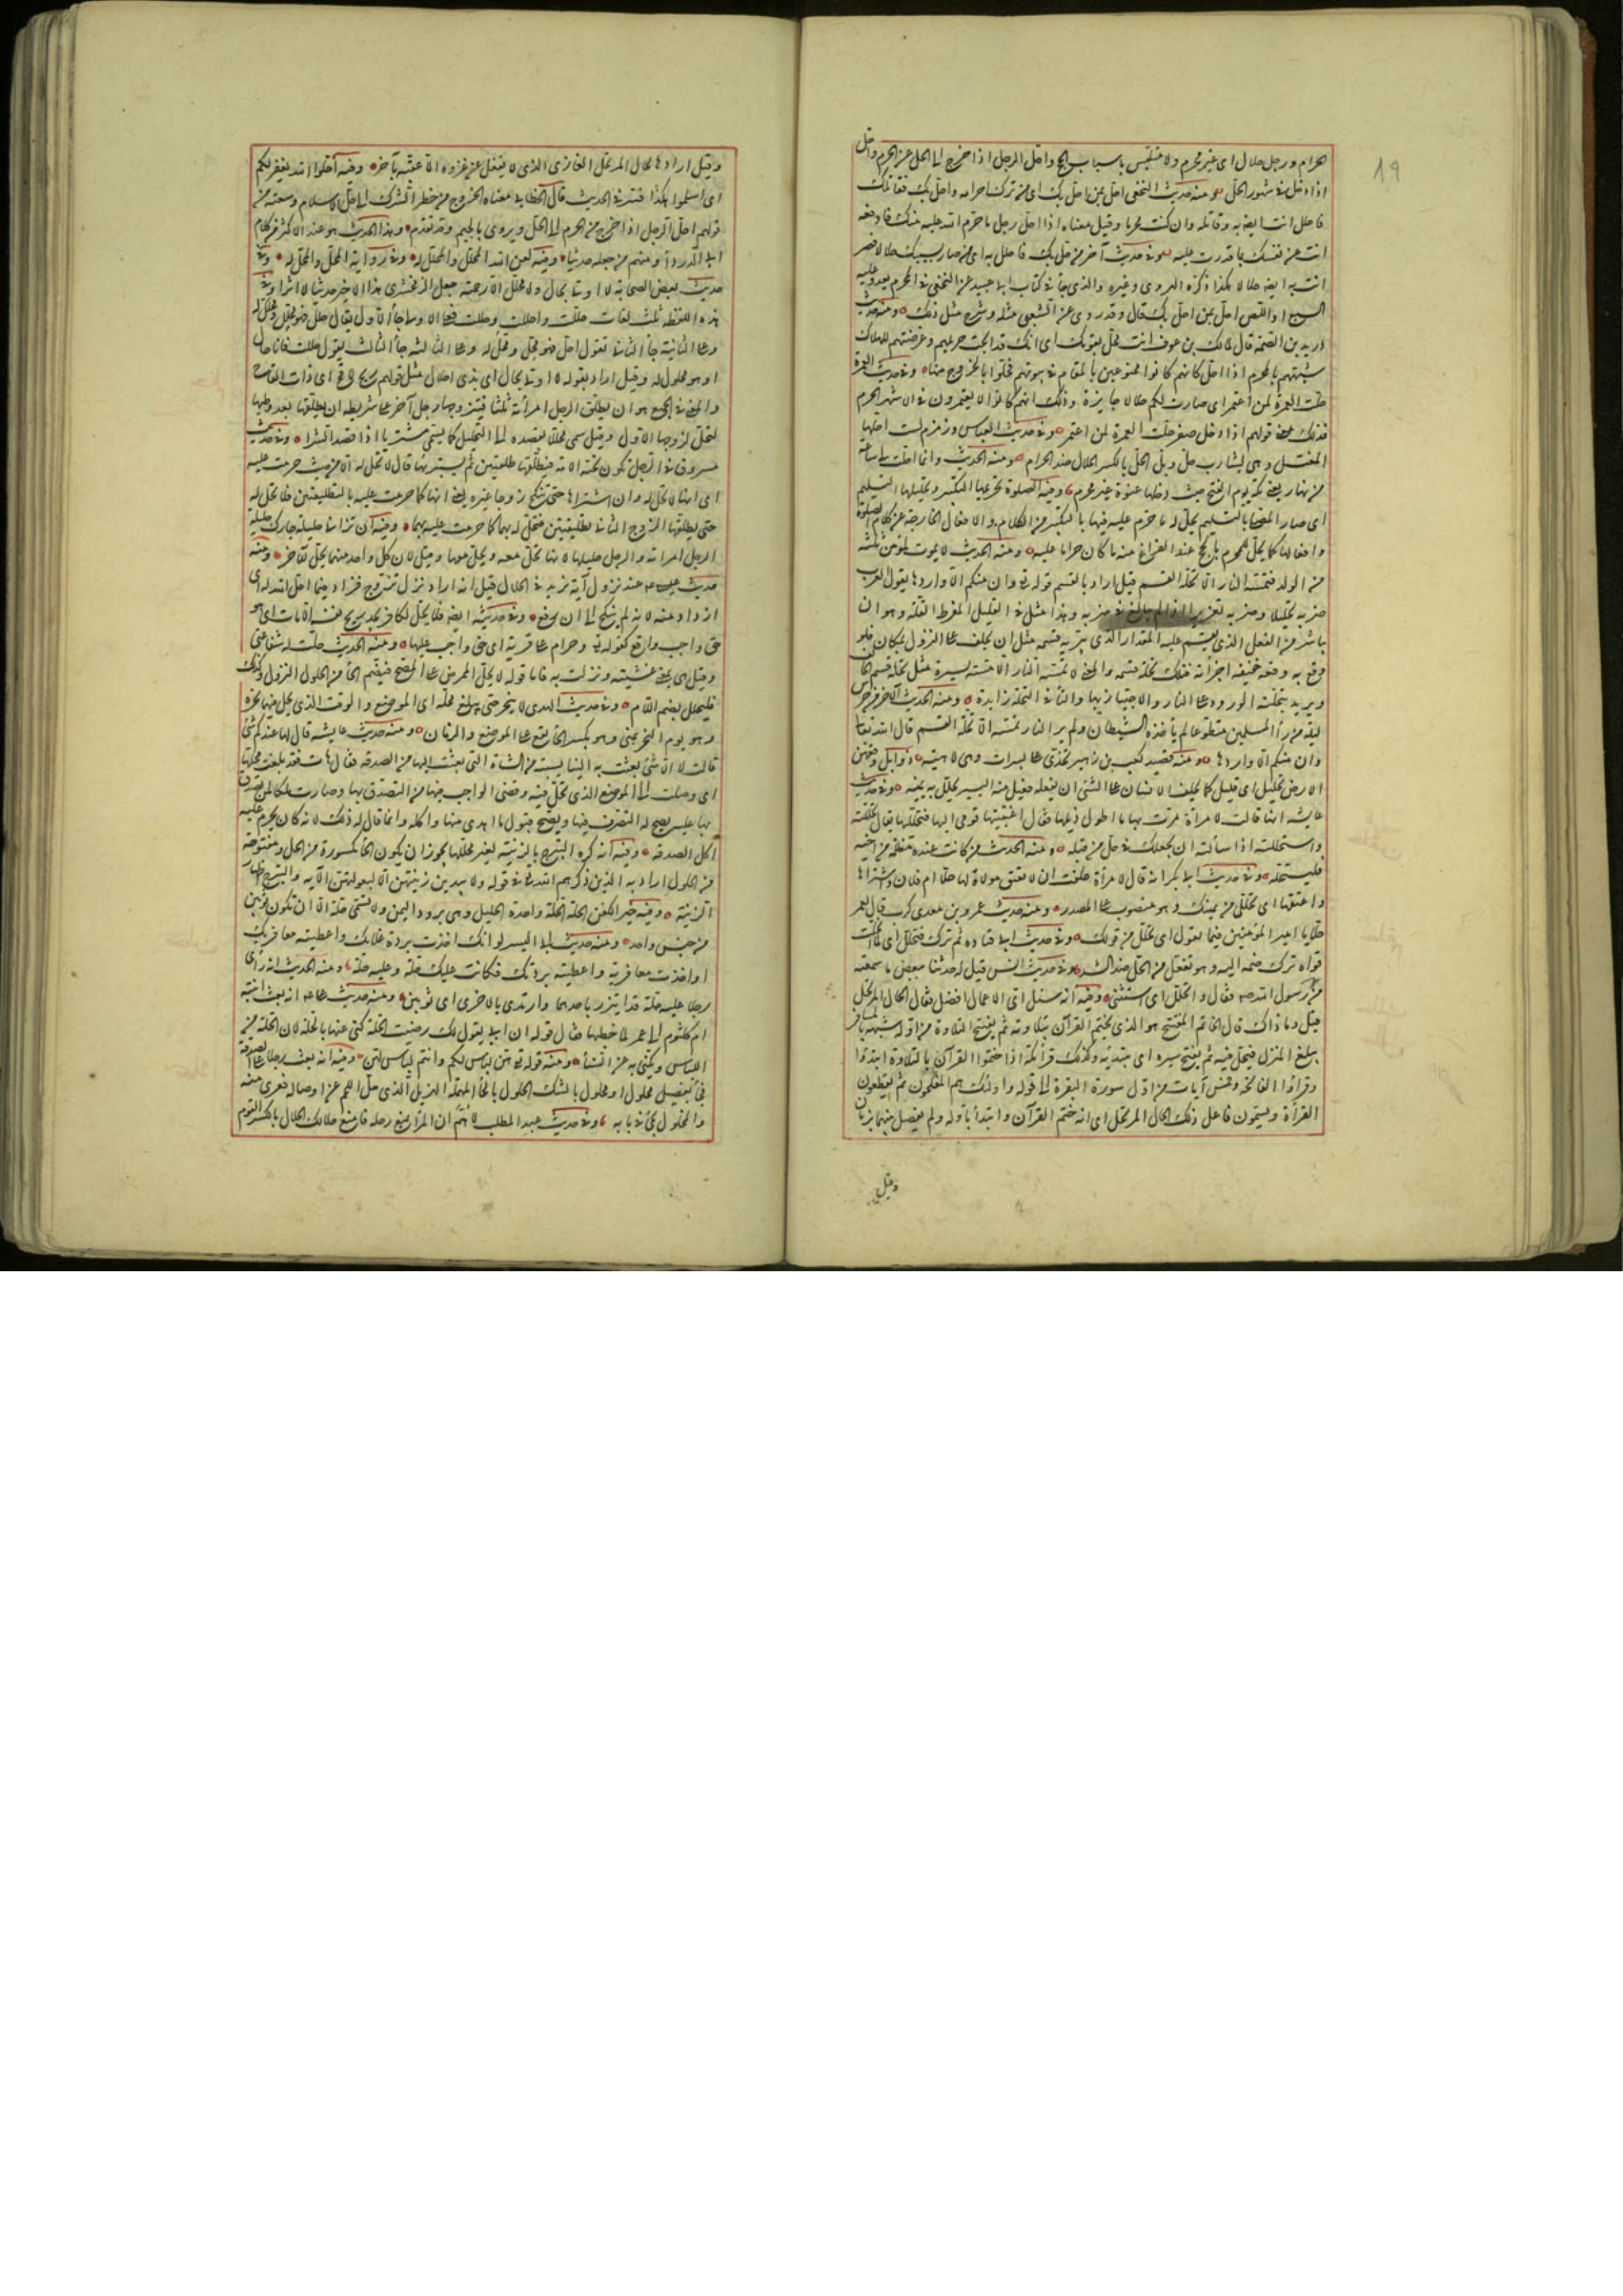 الحرام ورجل حلال اى غير محرم ولا متلبس باسباب الحج واحل الرجل اذا خرج الى الحل عن الحرم واحل
اذا دخل فى شهور الحل ومنه حديث النخعى احل بمن احل بك اى من ترك احرامه واحل بك فقاتلك
فاحلل انت ايضا به وقاتله وان كنت محرما وقيل معناه اذا احل رجل ما حرم الله عليه منك فادفعه
انت عن نفسك بما قدرت عليه وفى حديث آخر من حل بك فاحلل به اى من صار بسببك حلالا فصر
انت به ايضا حلالا هكذا ذكره الهروى وغيره والذى جاء فى كتاب ابى عبيد عن النخعى فى المحرم يعدو عليه
السبع او اللص احل بمن احل بك قال وقد روى عن الشعبى مثله وشرح مثل ذلك ومنه حديث
دريد بن الصمة قال لمالك بن عوف انت محل بقومك اى انك قد ابحت حريمهم وعرضتهم للهلاك
شبههم بالمحرم اذا احل كانهم كانوا ممنوعين بالمقام فى بيوتهم فحلوا بالخروج منها وفى حديث العمرة
حلت العمرة لمن اعتمر اى صارت لكم حلالا جايزة وذلك انهم كانوا لا يعتمرون فى الاشهر الحرم
فذلك معنى قولهم اذا دخل صفر حلت العمرة لمن اعتمر وفى حديث العباس وزمزم لست احلها
لمغتسل وهى لشارب حل وبل الحل بالكسر الحلال ضد الحرام ومنه الحديث وانما احلت لى ساعة
من نهار يعنى مكة يوم الفتح حيث دخلها عنوة غير محرم وفيه الصلوة تحريمها التكبير وتحليلها التسليم
اى صار المصلى بالتسليم يحل له ما حرم عليه فيها بالتكبير من الكلام والافعال الخارجة عن كلام الصلوة
وافعالها كما يحل للمحرم بالحج عند الفراغ منه ما كان حراما عليه ومنه الحديث لا يموت لمؤمن ثلثة
من الولد فتمسه النار الا تحلة القسم قيل اراد بالقسم قوله تع وان منكم الا واردها يقول العرب
ضربه تحليلا وضربه تعزيرا اذا لم يبالغ فى ضربه وهذا مثل فى القليل المفرط القلة وهو ان
يباشر من الفعل الذى يقسم عليه المقدار الذى يبر به قسمه مثل ان يحلف على النزول بمكان فلو
وقع به وقعة خفيفة اجزأته فتلك تحلة قسمه والمعنى لا تمسه النار الا مسة يسيرة مثل تحلة قسم الحالف
ويريد بتحلته الورود على النار والاجتياز بها والتاء فى التحلة زايدة ومنه الحديث الآخر من حرس
ليلة من وراء المسلمين متطوعا لم يأخذه الشيطان ولم ير النار تمسه الا تحلة القسم قال الله تعالى
وان منكم الا واردها ومنه قصيد كعب بن زهير تخذى على يسرات وهى لاهية ذوابل وقعهن
الارض تحليل اى قليل كما يحلف الانسان على الشئ ان يفعله فيفعل منه اليسير يحلل به يمينه وفى حديث
عايشة انها قالت لامرأة مرت بها ما اطول ذيلها فقال اغتبتيها قومى اليها فتحلليها يقال تحللته
واستحللته اذا سألته ان يجعلك فى حل من قبله ومنه الحديث من كانت عنده مظلمة من اخيه
فليستحله وفى حديث ابى بكر انه قال لامرأة حلفت ان لا تعتق مولاة لها حلا ام فلان واشتراها
واعتقها اى تحللى من يمينك وهو منصوب على المصدر ومنه حديث عمرو بن معدى كرب قال لعمر
حلا يا امير المؤمنين فيما تقول اى تحلل من قولك وفى حديث ابى قتادة ثم ترك فتحلل اى لما انحلت
قواه ترك ضمه اليه وهو تفعل من الحل ضد الشد وفى حديث انس قيل له حدثنا ببعض ما سمعته
من رسول الله صم فقال واتحلل اى استثنى وفيه انه سئل اى الاعمال افضل فقال الحال المرتحل
قيل وما ذاك قال الخاتم المفتتح هو الذى يختم القرآن بتلاوته ثم يفتتح التلاوة من اوله شبهه بالمسافر
يبلغ المنزل فيحل فيه ثم يفتتح سيره اى يبتديه وكذلك قراء مكة اذا ختموا القرآن بالتلاوة ابتدؤا
وقراوا الفاتحة وخمس آيات من اول سورة البقرة الى قوله واولئك هم المفلحون ثم يقطعون
القرأة ويسمون فاعل ذلك الحال المرتحل اى انه ختم القرآن وابتدأ باوله ولم يفصل بينهما بزمان
وقيل
وقيل اراد بالحال المرتحل الغازى الذى لا يقفل عن غزوه الا عقبه بآخر وفيه احلوا الله يغفر لكم
اى اسلموا هكذا فسر فى الحديث قال الخطابى معناه الخروج من حظر الشرك الى حل الاسلام وسعته من
قولهم احل الرجل اذا خرج من الحرم الى الحل ويروى بالجيم وقد تقدم وهذا الحديث هو عند الاكثر من كلام
ابى الدرداء ومنهم من جعله حديثا وفيه لعن الله المحلل والمحلل له وفى رواية المحل والمحل له وفى
حديث بعض الصحابة لا اوتى بحال ولا محلل الا رجمته جعل الزمخشرى هذا الاخير حديثا لا اثرا وفى
هذه اللفظة ثلث لغات حللت واحللت وحللت فعلى الاولى جاء الاول يقال حلل فهو محلل ومحلل له
وعلى الثانية جاء الثانى تقول احل فهو محل ومحل له وعلى الثالثة جاء الثالث يقول حللت فانا حال
وهو محلول له وقيل اراد بقوله لا اوتى بحال اى بذى احلال مثل قولهم ريح لاقح اى ذات القاح
والمعنى فى الجميع هو ان يطلق الرجل امرأته ثلثا فيتزوجها رجل آخر على شريطة ان يطلقها بعد وطيها
لتحل لزوجها الاول وقيل سمى محللا بقصده الى التحليل كما يسمى مشتريا اذا قصد الشرا وفى حديث
مسروق فى الرجل تكون تحته الامة فيطلقها طلقتين ثم يشتريها قال لا تحل له الا من حيث حرمت عليه
اى انها لا تحل له وان اشتراها حتى تنكح زوجا غيره يعنى انها كما حرمت عليه بالتطليقتين فلا تحل له
حتى يطلقها الزوج الثانى تطليقتين فتحل له بهما كما حرمت عليه بهما وفيه ان تزانى حليلة جارك حليلة
الرجل امراته والرجل حليلها لانها تحل معه ويحل معها وقيل لان كل واحد منهما يحل للآخر ومنه
حديث عيسى عم عند نزوله انه يزيد فى الحلال قيل اراد انه اذا نزل تزوج فزاد فيما احل الله له اى
ازداد منه لانه لم ينكح الى ان رفع وفى حديثه ايضا فلا يحل لكافر يجد ريح نفسه الا مات اى هو
حق واجب واقع كقوله تع وحرام على قرية اى حق واجب عليها ومنه الحديث حلت له شفاعتى
وقيل هى بمعنى غشيته ونزلت به فاما قوله لا يحل الممرض على المصح فبضم الحاء من الحلول النزول وكذلك
فليحلل بضم اللام وفى حديث الهدى لا ينحر حتى يبلغ محله اى الموضع والوقت الذى يحل فيهما نحره
وهو يوم النحر بمنى وهو بكسر الحاء يقع على الموضع والزمان ومنه حديث عايشة قال لها هل عندكم شئ
قالت لا الا شئ بعثت به الينا نسيبة من الشاة التى بعثت اليها من الصدقة فقال هات فقد بلغت محلها
اى وصلت الى الموضع الذى تحل فيه وقضى الواجب فيها من التصدق بها وصارت ملكا لمن تصدق
بها عليه يصح له التصرف فيها ويصح قبول ما اهدى منها واكله وانما قال له ذلك لانه كان يحرم عليه
اكل الصدقة وفيه انه كره التبرج بالزينة لغير محلها يجوز ان يكون الحاء مكسورة من الحل ومفتوحة
من الحلول اراد به الذين ذكرهم الله تع فى قوله ولا يبدين زينتهن الا لبعولتهن الآية والتبرج اظهار
الزينة وفيه خير الكفن الحلة الحلة واحدة الحلل وهى برود اليمن ولا تسمى حلة الا ان تكون ثوبين
من جنس واحد ومنه حديث ابى اليسر لو انك اخذت بردة غلامك واعطيته معافريك
او اخذت معافريه واعطيته بردتك فكانت عليك حلة وعليه حلة ومنه الحديث انه رأى
رجلا عليه حلة قد ايتزر باحدهما وارتدى بالاخرى اى ثوبين ومنه حديث على انه بعث ابنته
ام كلثوم الى عمر لما خطبها فقال قولى له ان ابى يقول لك رضيت الحلة كنى عنها بالحلة لان الحلة من
اللباس ويكنى به عن النساء ومنه قوله تع هن لباس لكم وانتم لباس لهن وفيه انه بعث رجلا على الصدقة
فجاء بفصيل محلول او مخلول بالشك المحلول بالحاء المهملة الهزيل الذى حل اللحم عن اوصاله فعرى منه
والمخلول يجئ فى بابه وفى حديث عبد المطلب لاهم ان المرء يمنع رحله فامنع حلالك الحلال بالكسر القوم